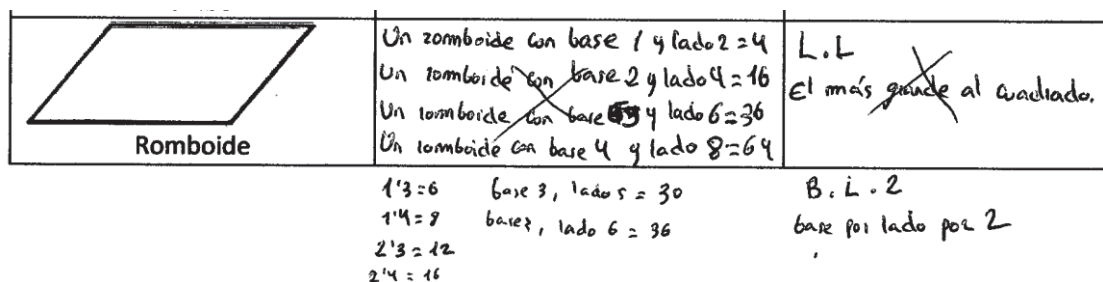 Romboide
Un romboide con base 1 y lado 2 = 4
Un romboide con base 2 y lado 4 = 16
Un romboide con base y lado 6 = 36
Un romboide con base 4 y lado 8 = 64
L.L
El más grande al cuadrado.
1'3 = 6
1'4 = 8
2'3 = 12
2'4 = 16
base 3, lado 5 = 30
base 3, lado 6 = 36
B. L. 2
base por lado por 2